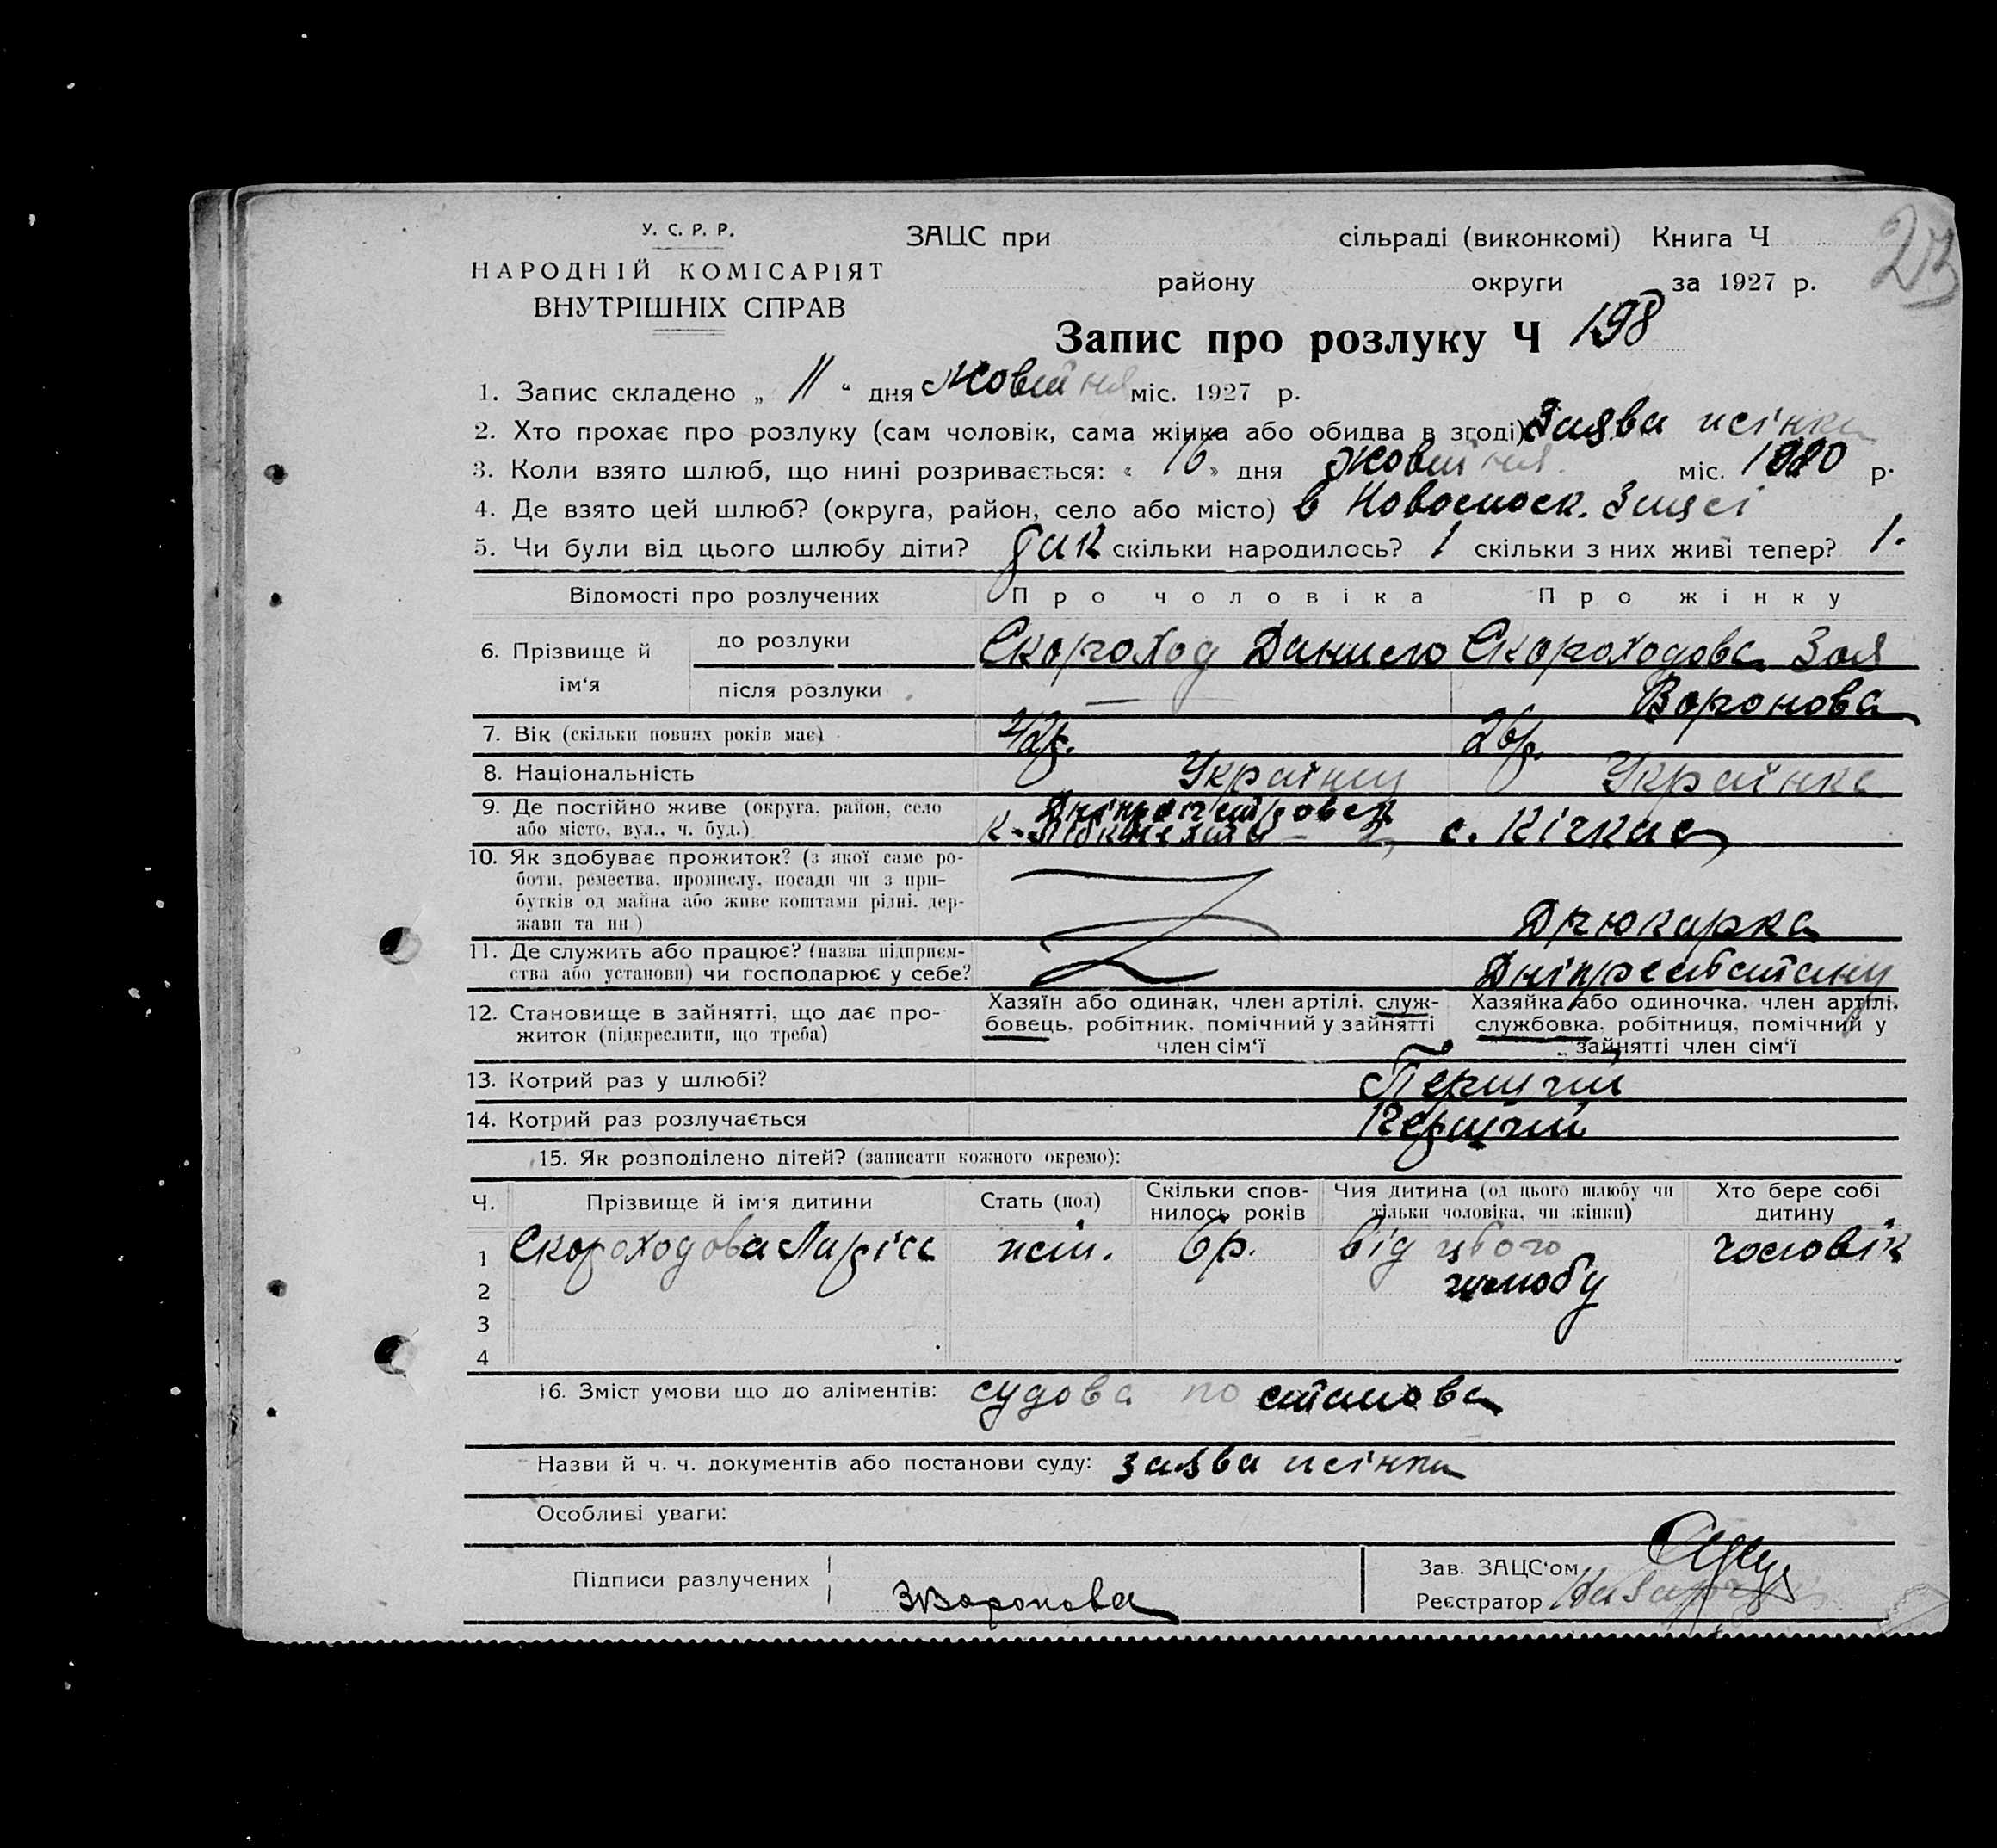 23
У. С. Р. Р.
НАРОДНІЙ КОМІСАРІЯТ
ВНУТРІШНІХ СПРАВ
ЗАЦС при сільраді (виконкомі) Книга Ч
району округи за 1927 р.
Запис про розлуку Ч 198
1. Запис складено „ 11 “ дня Жовтня міс. 1927 р.
2. Хто прохає про розлуку (сам чоловік, сама жінка або обидва в згоді) Заява жінки
3. Коли взято шлюб, що нині розривається: « 16 » дня Жовтня міс. 1920 р.
4. Де взято цей шлюб? (округа, район, село або місто) в Новомоск. Загсі
5. Чи були від цього шлюбу діти? так скільки народилось? 1 скільки з них живі тепер? 1.
Відомості про розлучених Про чоловіка Про жінку
6. Прізвище й ім‘я до розлуки Скороход Данило Скороходова Зоя
після розлуки — Воронова
7. Вік (скільки повних років має) 42р. 26р.
8. Національність Українец Українка
9. Де постійно живе (округа, район, село або місто, вул., ч. буд.) Дніпропетровск с. Кічкас
10. Як здобуває прожиток? (з якої саме роботи, ремества, промислу, посади чи з прибутків од майна або живе коштами рідні, держави та ин.) Друкарка
11. Де служить або працює? (назва підприємства або установи) чи господарює у себе?
12. Становище в зайнятті, що дає прожиток (підкреслити, що треба) Хазяїн або одинак, член артілі, службовець, робітник, помічний у зайнятті член сім‘ї Хазяйка або одиночка, член артілі, службовка, робітниця, помічний у зайнятті член сім‘ї
13. Котрий раз у шлюбі? Перший
14. Котрий раз розлучається Перший
15. Як розподілено дітей? (записати кожного окремо):
Ч. Прізвище й ім‘я дитини Стать (пол) Скільки сповнилось років Чия дитина (од цього шлюбу чи тільки чоловіка, чи жінки) Хто бере собі дитину
1 Скороходова Ларіса жін. 6р. від цього шлюбу чоловік
2
3
4
16. Зміст умови що до аліментів: судова постанова
Назви й ч. ч. документів або постанови суду: заява жінки
Особливі уваги:
Підписи разлучених ЗВоронова
Зав. ЗАЦС‘ом
Реєстратор